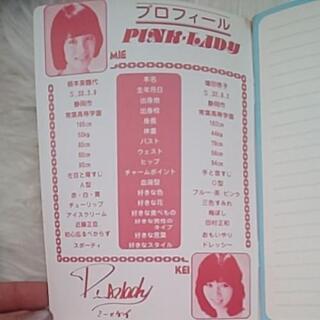 プロフィール
PINK・LADY
MIE
根本美鶴代 本名 増田恵子
S.33.3.9 生年月日 S.32.9.2
静岡市 出身地 静岡市
常葉高等学園 出身校 常葉高等学園
165cm 身長
50kg 体重
バスト
ウェスト
ヒップ
左目と眉すじ チャームポイント 手と首すじ
A型 血液型 O型
赤・白・黄 好きな色 ブルー・茶・ピンク
チューリップ 好きな花 三色すみれ
アイスクリーム 好きな食べもの 梅ぼし
近藤正臣 好きな男性のタイプ 田村正和
初心忘るべからず 好きな言葉 おもいやり
スポーティ 好きなスタイル ドレッシー
KEI